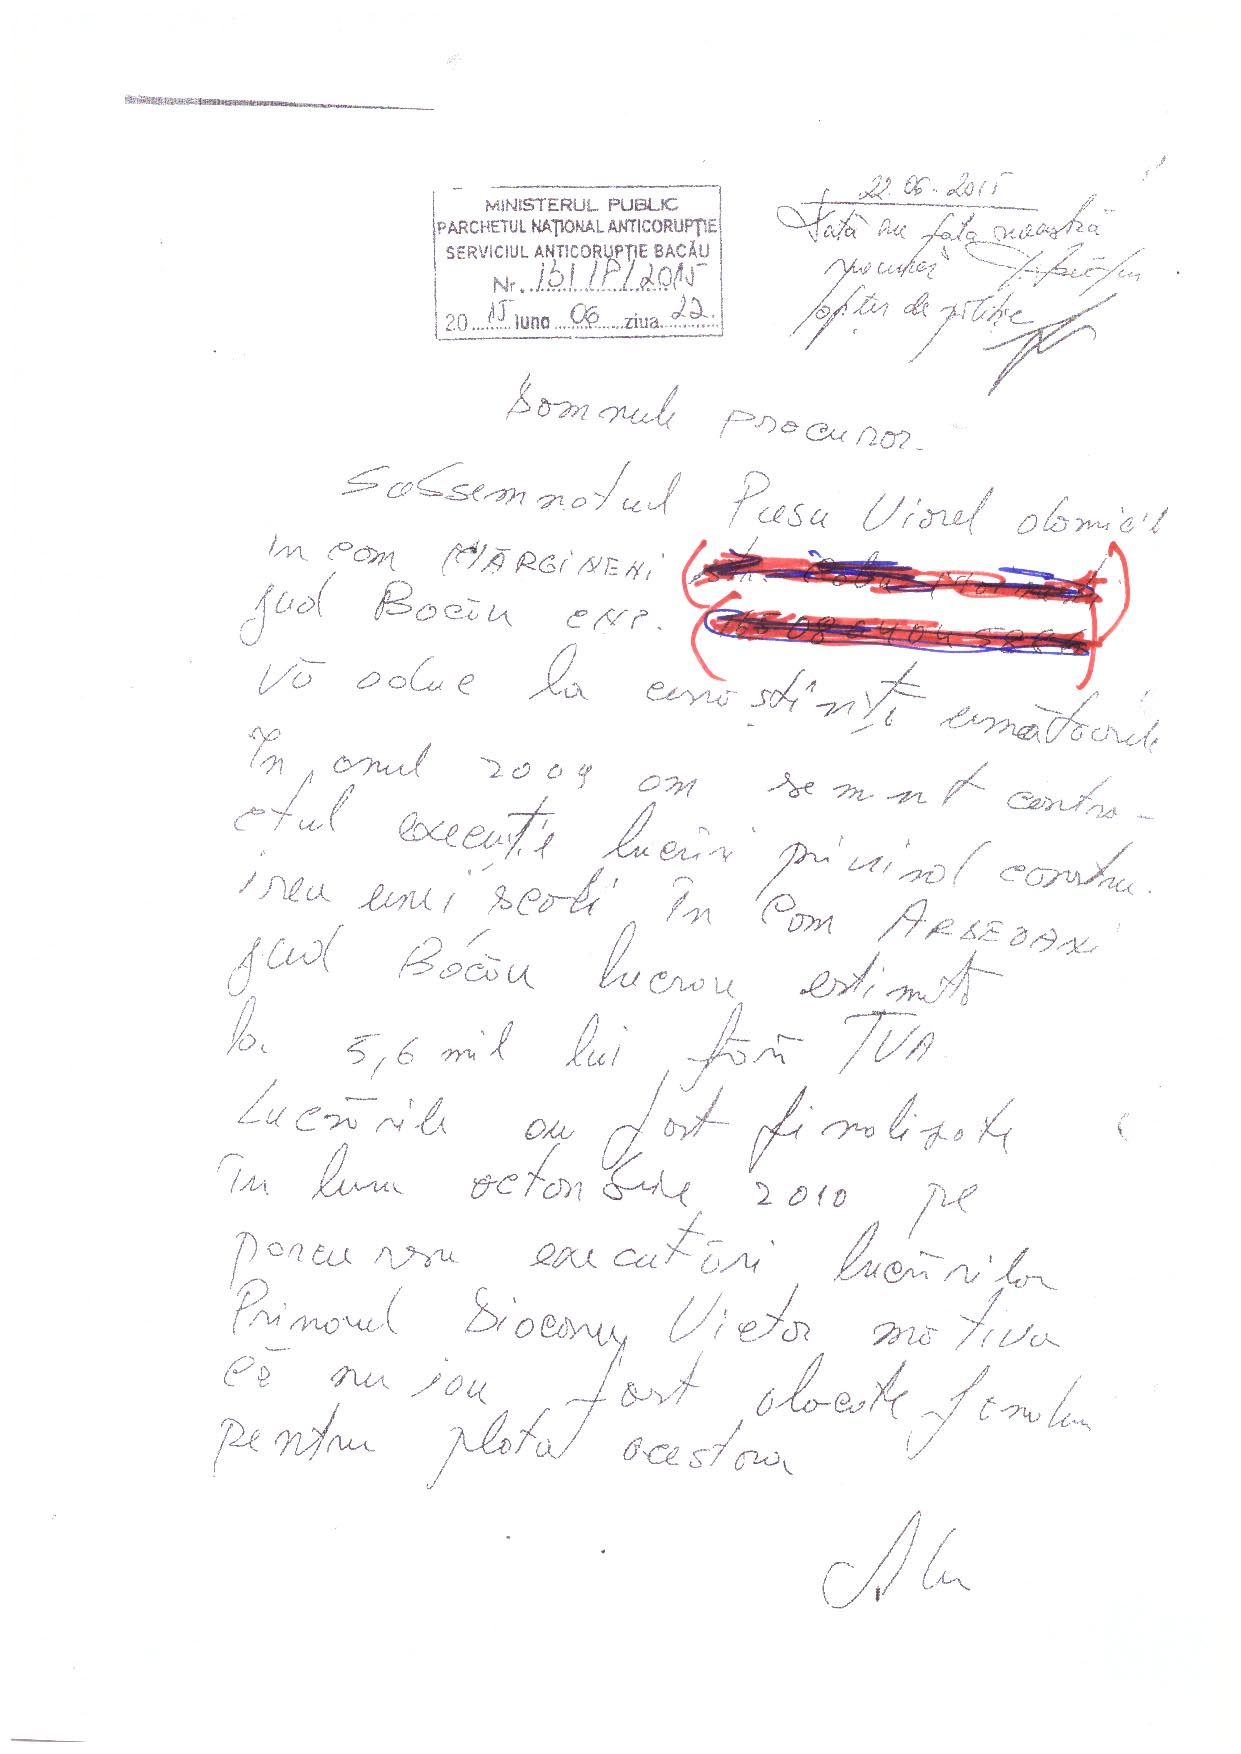 22.06.2015
Dată în fața noastră
procuror
ofițer de poliție
MINISTERUL PUBLIC
PARCHETUL NAȚIONAL ANTICORUPȚIE
SERVICIUL ANTICORUPȚIE BACĂU
Nr. 131/P/2015
20 15 luna 06 ziua 22
Domnule procuror.
Subsemnatul Pusu Viorel domicil
în com MĂRGINENI
jud Bacău CNP.
Vă aduc la cunoștință următoarele
În anul 2009 am semnat contra-
ctul execuție lucrări privind constru
irea unei școli în com ARBEOANI
jud Bacău lucrare estimată
la 5,6 mil lei fără TVA
Lucrările au fost finalizate
în luna octombrie 2010 pe
parcursu executări lucrărilor
Primarul Diaconu Victor motiva
că nu iau fost alocate fonduri
pentru plata acestora